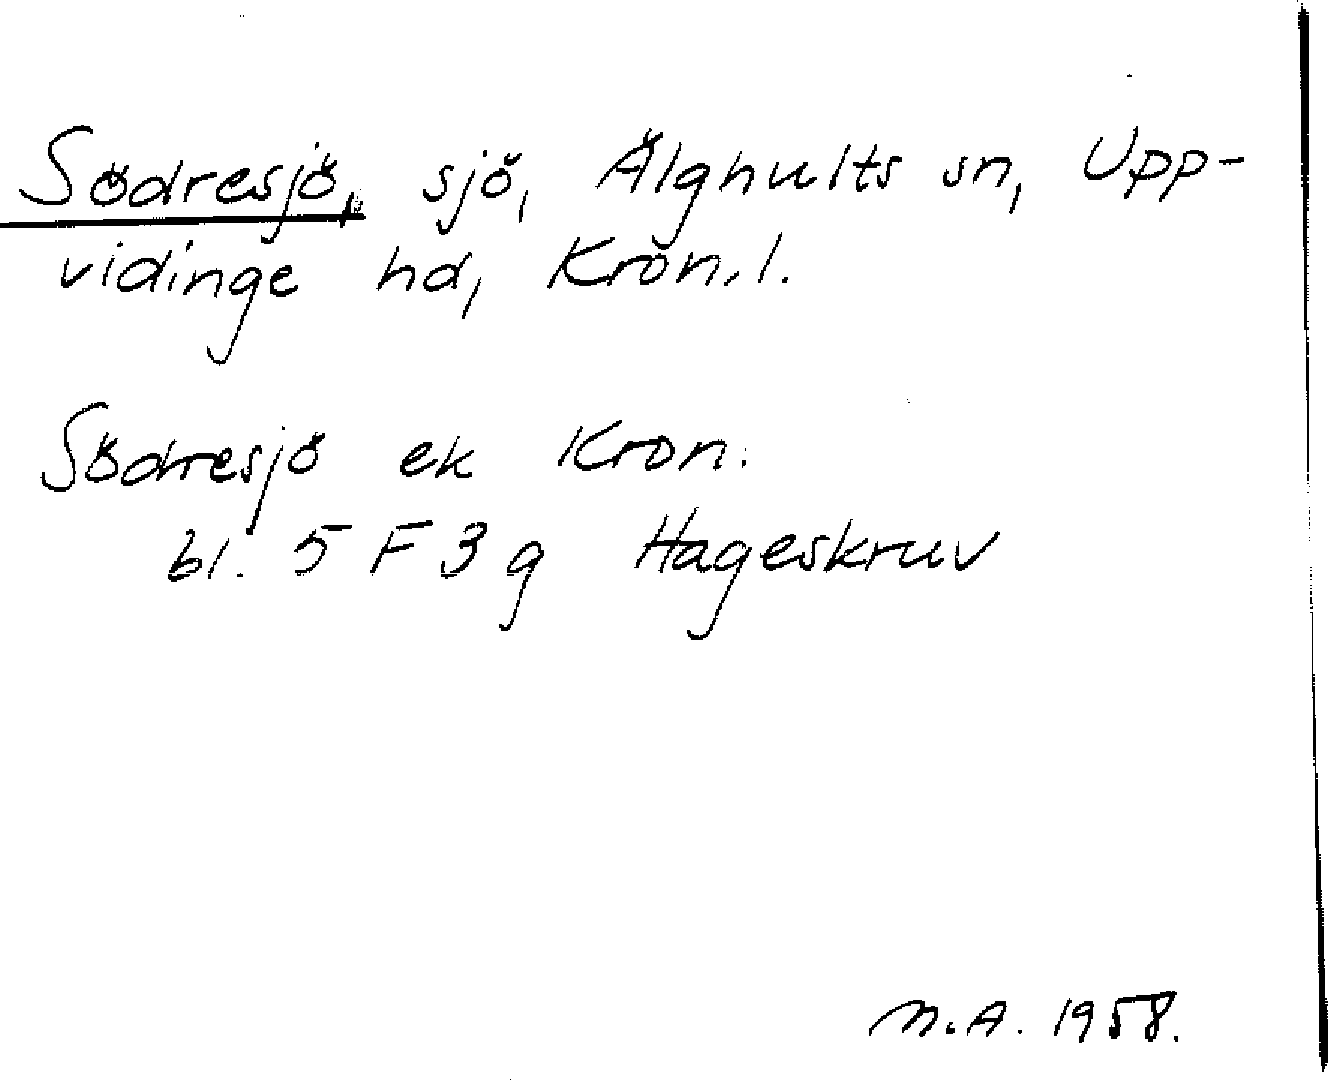 Södresjö, sjö, Älghults sn, Upp-
vidinge hd, Kron.l.
Södresjö ek Kron.
bl. 5 F 3 g Hageskruv
N.A. 1958.